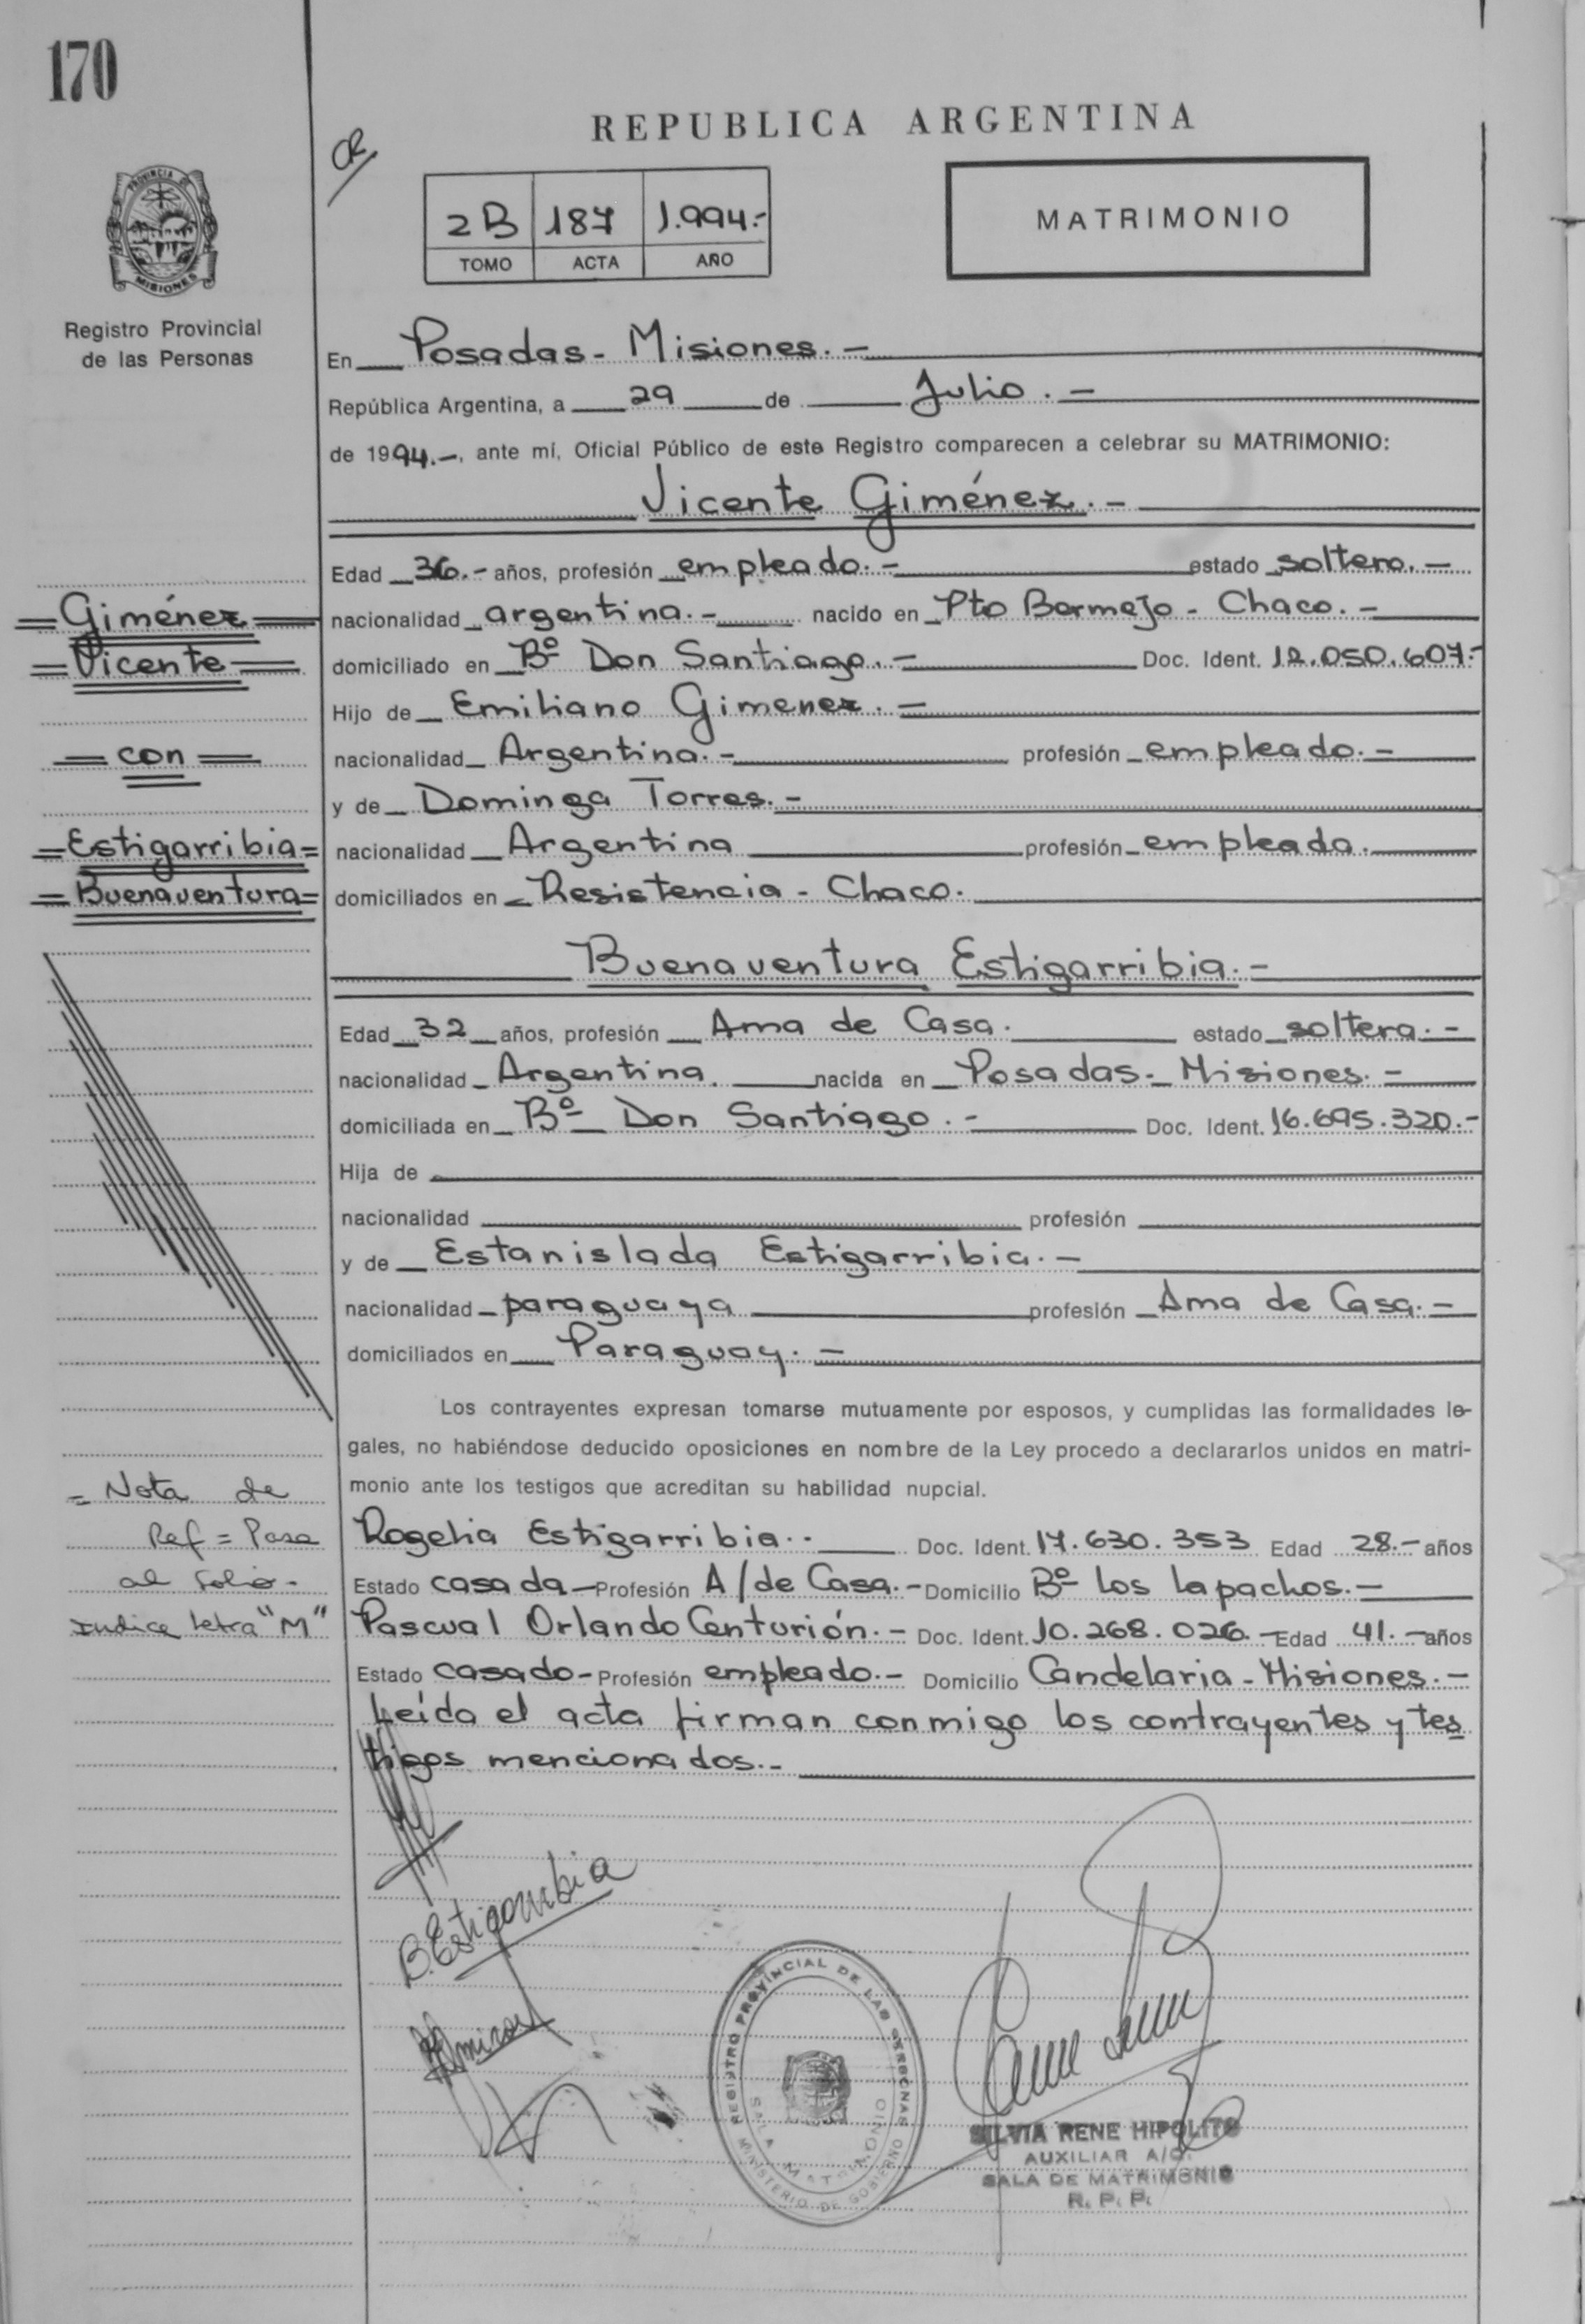 170
REPUBLICA ARGENTINA
2B 187 1.994.-
TOMO ACTA AÑO
MATRIMONIO
PROVINCIA DE
MISIONES
Registro Provincial
de las Personas
En Posadas - Misiones. -
República Argentina, a 29 de Julio. -
de 1994.-, ante mí, Oficial Público de este Registro comparecen a celebrar su MATRIMONIO:
Vicente Giménez. -
Edad 36.- años, profesión empleado. - estado soltero. -
nacionalidad argentina. - nacido en Pto Bermejo - Chaco. -
domiciliado en Bº Don Santiago. - Doc. Ident. 12.050.607.-
Hijo de Emiliano Gimenez. -
nacionalidad Argentina. - profesión empleado. -
y de Dominga Torres. -
nacionalidad Argentina profesión empleada.
domiciliados en Resistencia - Chaco.
= Giménez =
= Vicente =
= con =
= Estigarribia =
= Buenaventura =
Buenaventura Estigarribia. -
Edad 32 años, profesión Ama de Casa. estado soltera. -
nacionalidad Argentina. nacida en Posadas - Misiones. -
domiciliada en Bº Don Santiago. - Doc. Ident. 16.695.320.-
Hija de
nacionalidad profesión
y de Estanislada Estigarribia. -
nacionalidad paraguaya profesión Ama de Casa. -
domiciliados en Paraguay. -
Los contrayentes expresan tomarse mutuamente por esposos, y cumplidas las formalidades le-
gales, no habiéndose deducido oposiciones en nombre de la Ley procedo a declararlos unidos en matri-
monio ante los testigos que acreditan su habilidad nupcial.
= Nota de
Ref = Pasa
al folio -
Indice letra "M"
Rogelia Estigarribia.. Doc. Ident. 17.630.353 Edad 28.- años
Estado casada - Profesión A/de Casa. - Domicilio Bº Los lapachos. -
Pascual Orlando Centurión. - Doc. Ident. 10.268.026.- Edad 41.- años
Estado casado - Profesión empleado. - Domicilio Candelaria - Misiones. -
Leída el acta firman conmigo los contrayentes y tes
tigos mencionados. -
B. Estigarribia
REGISTRO PROVINCIAL DE LAS PERSONAS
SALA MATRIMONIO
MINISTERIO DE GOBIERNO
SILVIA RENE HIPOLITO
AUXILIAR A/C.
SALA DE MATRIMONIO
R. P. P.